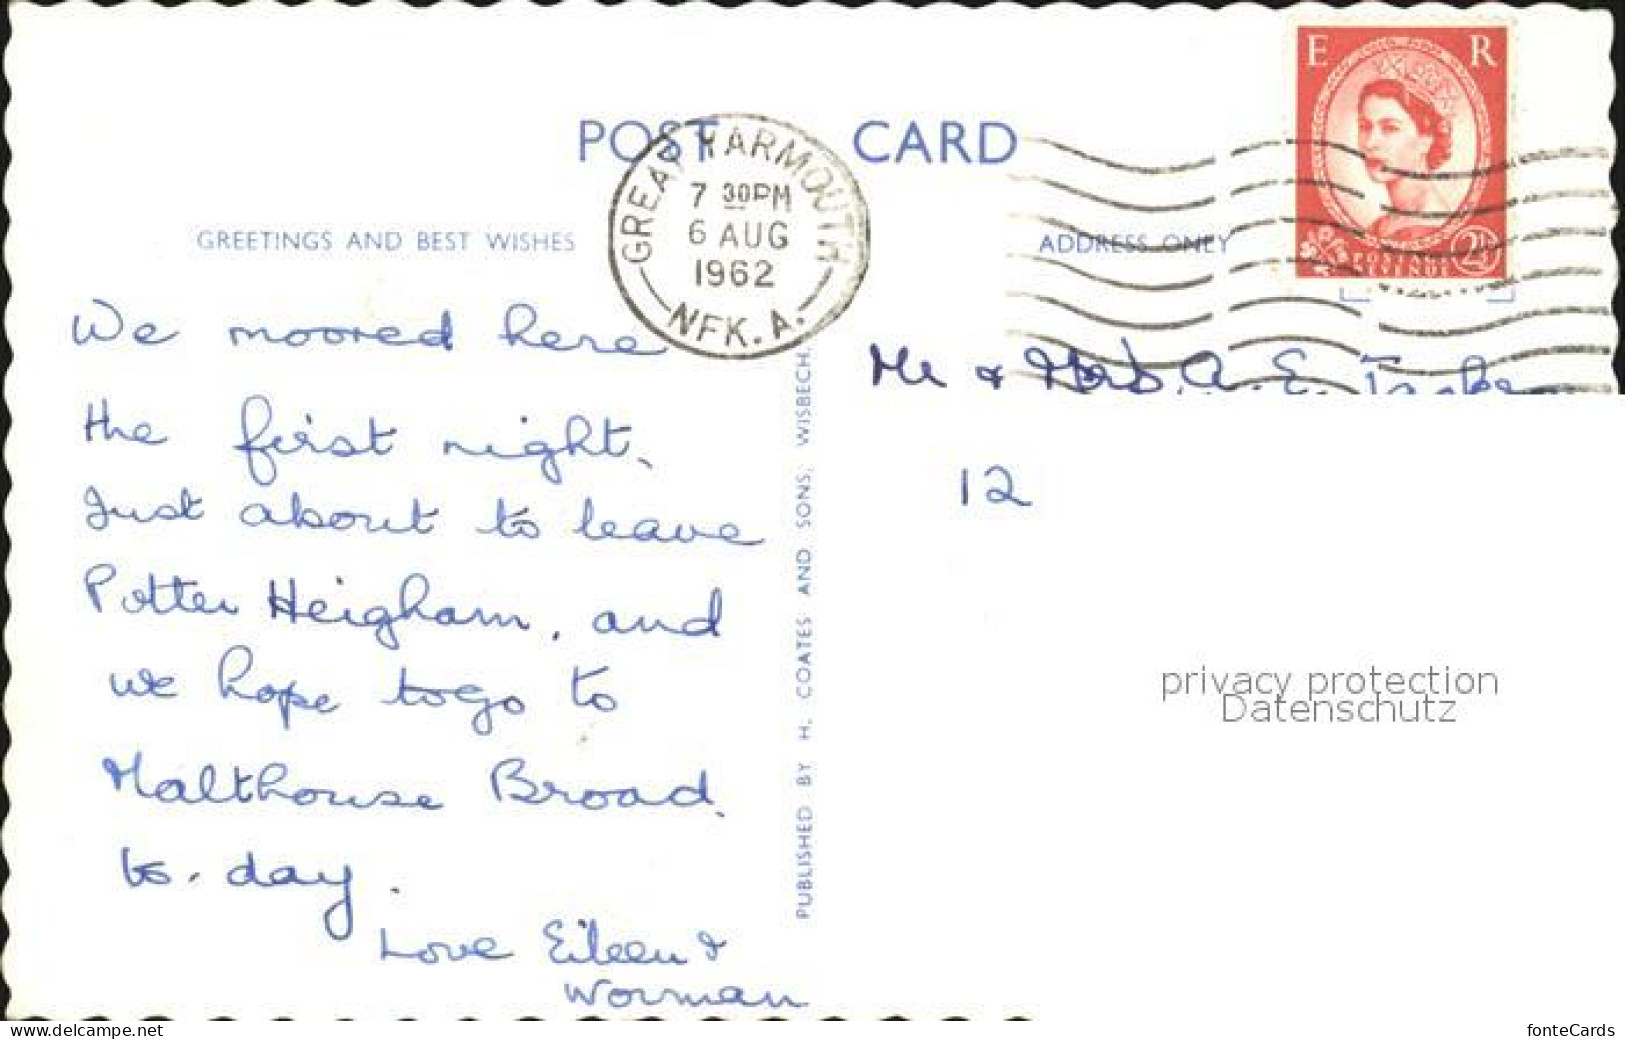 POST CARD
GREAT YARMOUTH
7 30PM
6 AUG
1962
NFK. A.
E R
POSTAGE
REVENUE
2½
GREETINGS AND BEST WISHES
ADDRESS ONLY
We moored here
the first night.
Just about to leave
Potter Heigham, and
we hope to go to
Malthouse Broad.
to. day.
Love Eileen &
Norman
PUBLISHED BY H. COATES AND SONS, WISBECH.
Mr & Mrs. A. E.
12
privacy protection
Datenschutz
www.delcampe.net
fonteCards